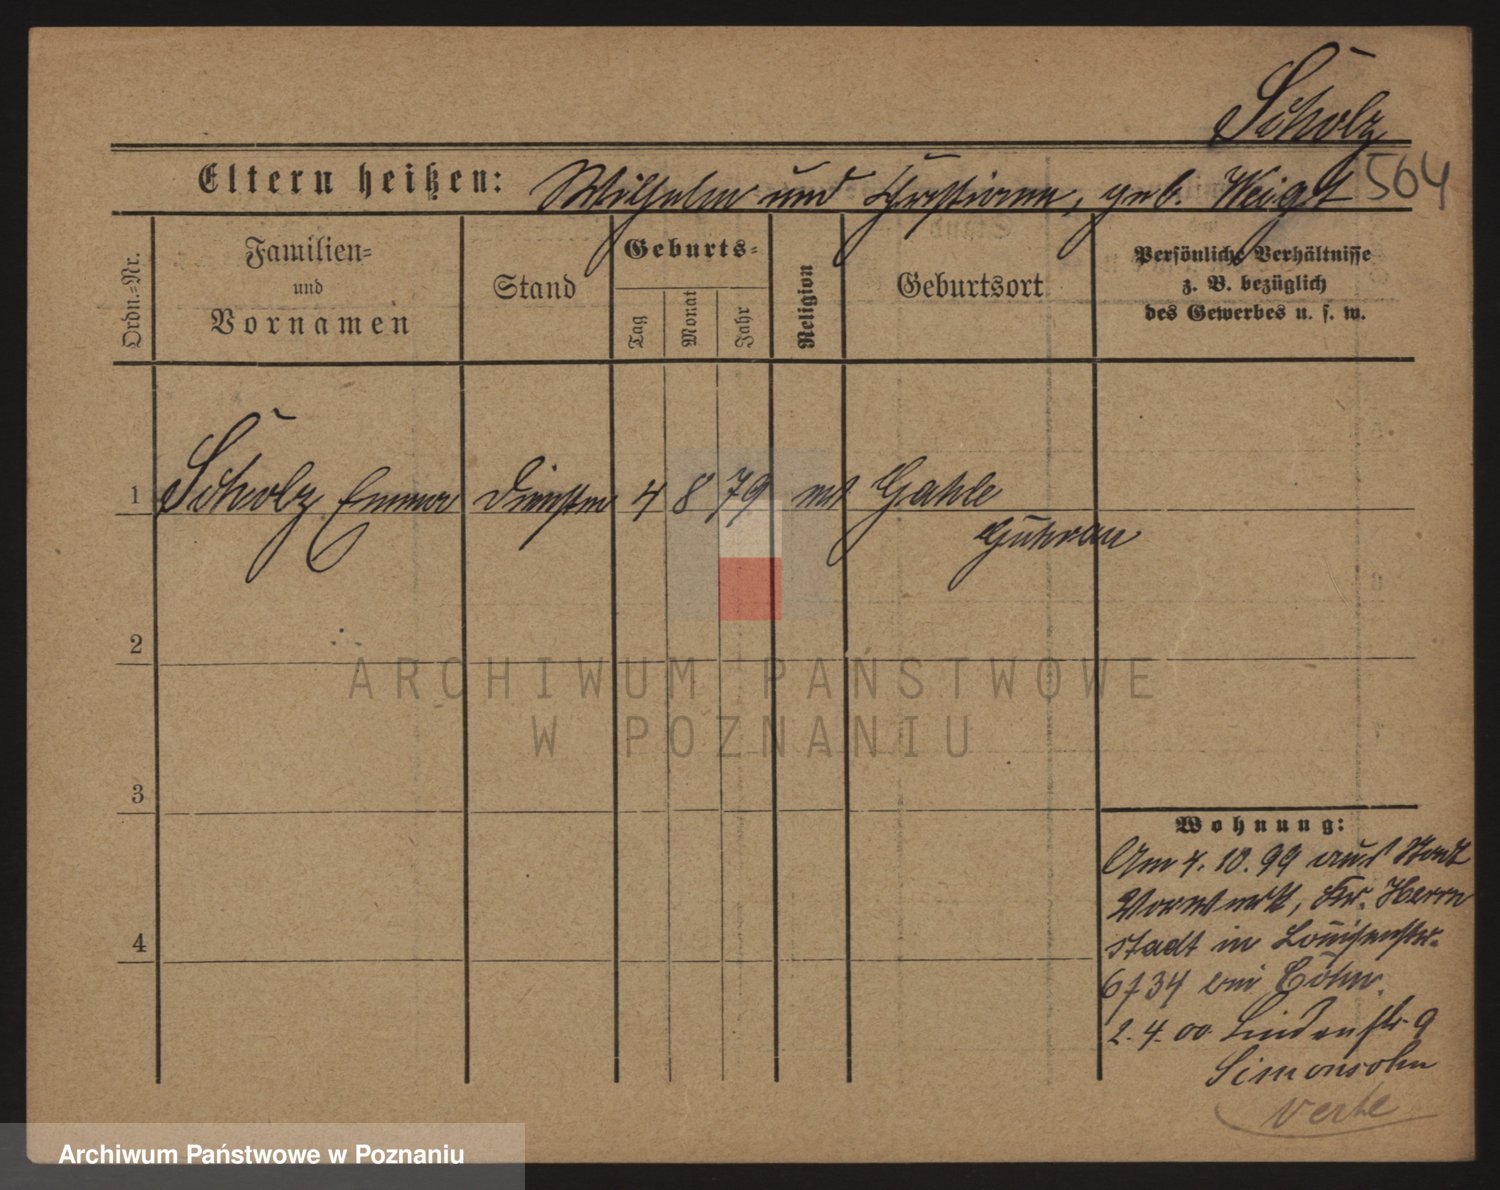 Scholz
564
Eltern heißen: Wilhelm und Christiane, geb. Weigt
Ordn.-Nr.
Familien-
und
Vornamen
Stand
Geburts-
Tag
Monat
Jahr
Religion
Geburtsort
Persönliche Verhältnisse
z. B. bezüglich
des Gewerbes u. s. w.
1 Scholz Emma 4 8 79 Gahle
Guhrau
2
3
4
Wohnung:
Am 4. 10. 99 aus Stadt
Vorwerk, Kr. Herrn
stadt in Louisenstr.
bei
2. 4. 00. Lindenstr. 9
Simonsohn
verte
ARCHIWUM PAŃSTWOWE
W POZNANIU
Archiwum Państwowe w Poznaniu